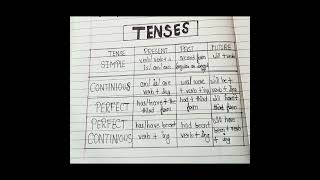 TENSES
TENSE PRESENT PAST FUTURE
SIMPLE verb/verb+s second form will + verb
is/am/are
CONTINIOUS am/is/are was/were will be +
verb + ing + verb + ing verb + ing
PERFECT has/have + the had + third will have +
third form form third form
PERFECT has/have been + had been + will have
CONTINIOUS verb + ing verb + ing been + verb
+ ing